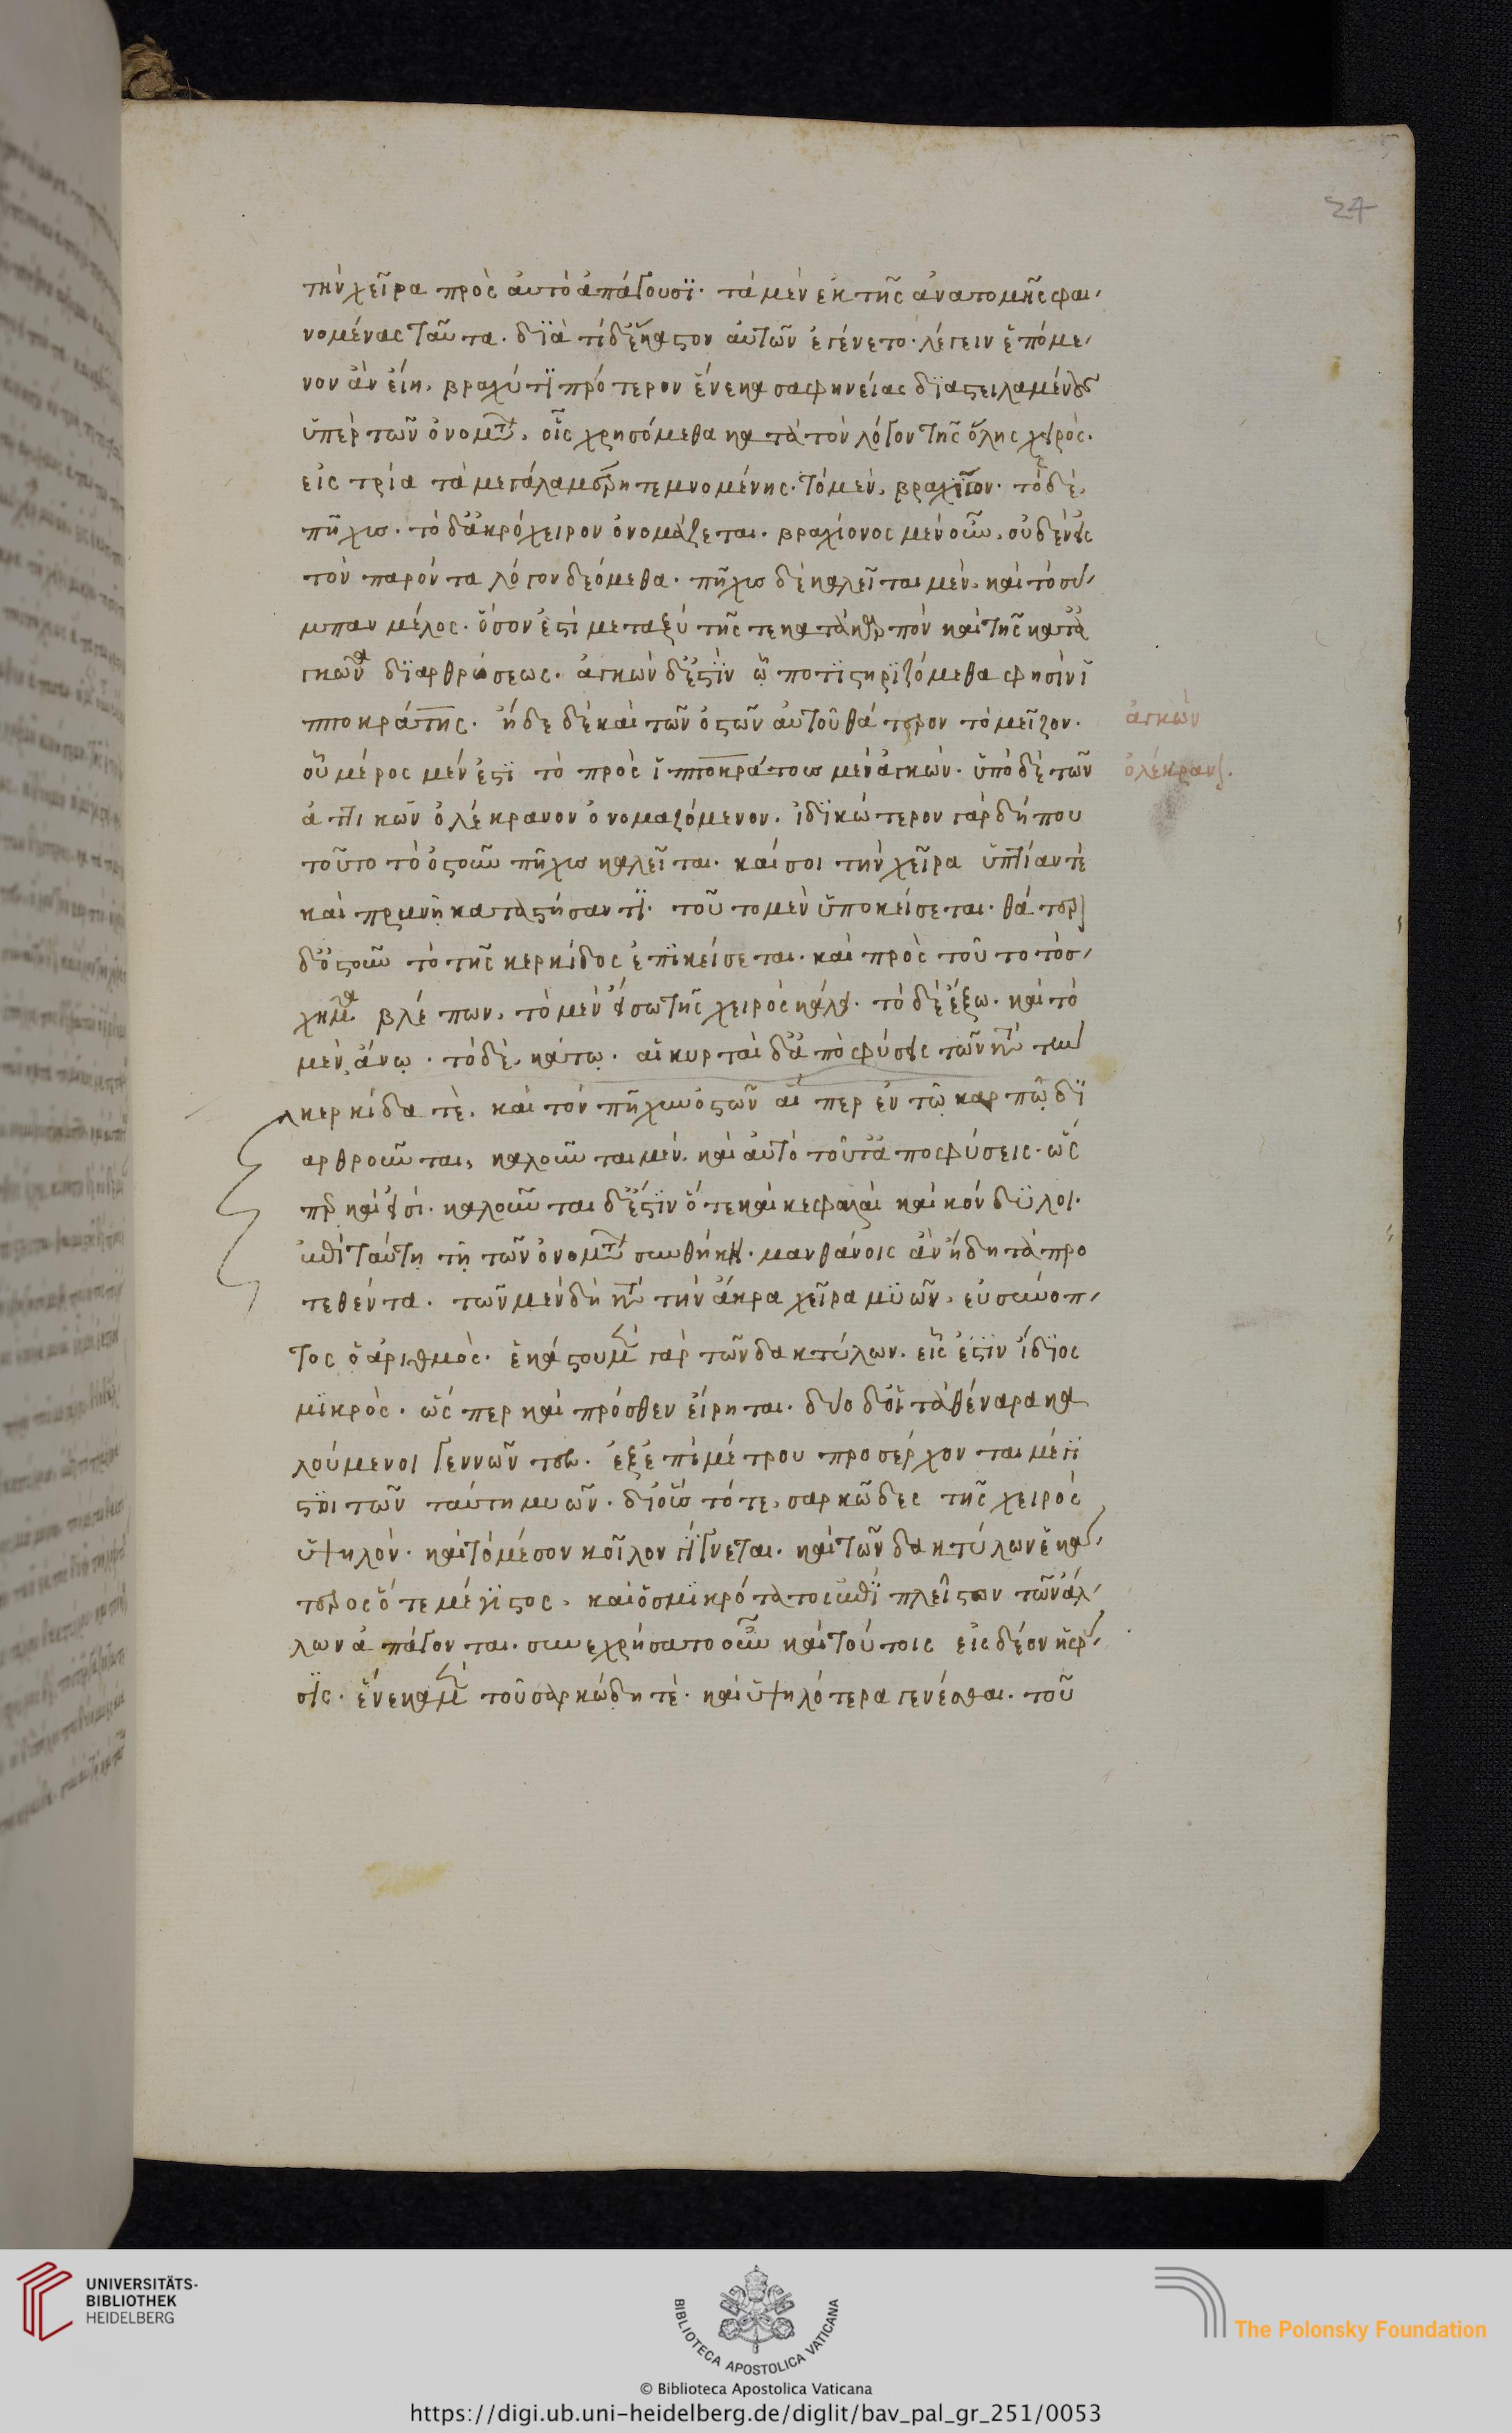 24
τὴν χεῖρα πρὸς αὐτὸ ἀπάγουσϊ· τὰ μὲν ἐκ τῆς ἀνατομῆς φαι
νομένας ταῦτα. δϊὰ τί δ' ἕκαστον αὐτῶν ἐγένετο· λέγειν ἑπόμε
νον ἂν εἴη. βραχύ τϊ πρότερον ἕνεκα σαφηνείας δϊαστειλαμένους
ὑπὲρ τῶν ὀνομάτ, οἷς χρησόμεθα κατὰ τὸν λόγον τῆς ὅλης χειρός.
εἰς τρία τὰ μεγάλα μέρη τεμνομένης. τὸ μὲν, βραχΐων. τὸ δὲ,
πῆχυς. τὸ δ' ἀκρόχειρον ὀνομάζεται. βραχίονος μὲν οὖν, οὐδὲν εἰς
τὸν παρόντα λόγον δεόμεθα. πῆχυς δὲ καλεῖται μὲν, καὶ τὸ σύ
μπαν μέλος. ὅσον ἐστὶ μεταξὺ τῆς τε κατὰ καρπὸν καὶ τῆς κατὰ
γκῶνα δϊαρθρώσεως. ἀγκὼν δ' ἐστὶν ᾧ ποτϊστηρϊζόμεθα φησὶν ἱ
πποκράτης. ἤδε δὲ καὶ τῶν ὀστῶν αὐτοῦ θάτερον τὸ μεῖζον.
οὗ μέρος μέν ἐστϊ τὸ πρὸς ἱπποκράτους μὲν ἀγκών. ὑπὸ δὲ τῶν
ἀττικῶν ὀλέκρανον ὀνομαζόμενον. ἰδϊκώτερον γὰρ δήπου
τοῦτο τὸ ὀστοῦν πῆχυς καλεῖται. καί σοι τὴν χεῖρα ὑπτίαν τὲ
καὶ πρανῆ καταστήσαντϊ. τοῦτο μὲν ὑποκείσεται. θάτερον
δ' ὀστοῦν τὸ τῆς κερκίδος ἐπϊκείσεται. καὶ πρὸς τοῦτο τὸ σ
χῆμα βλέπων, τὸ μὲν εἴσω τῆς χειρὸς κάλει. τὸ δὲ ἔξω. καὶ τὸ
μὲν, ἄνω. τὸ δὲ, κάτω. αἱ κυρταὶ δ' ἀποφύσεις τῶν κατὰ τὴν
κερκίδα τὲ, καὶ τὸν πῆχυν ὀστῶν αἵπερ ἐν τῷ καρπῷ δϊ
αρθροῦνται, καλοῦνται μὲν. καὶ αὐτὸ τοῦτ' ἀποφύσεις. ὥς
περ καὶ εἰσὶ. καλοῦνται δ' ἔστϊν ὅτε καὶ κεφαλαὶ καὶ κόνδυλοι.
ἐπὶ ταύτῃ τῇ τῶν ὀνομάτ συνθήκῃ. μανθάνοις ἂν ἤδη τὰ προ
τεθέντα. τῶν μὲν δὴ κατὰ τὴν ἄκρα χεῖρα μϋῶν, εὐσύνοπ
τος ὁ ἀριθμὸς. ἑκάστου μὲν γὰρ τῶν δακτύλων. εἷς ἐστϊν ἴδϊος
μϊκρὸς. ὥς περ καὶ πρόσθεν εἴρηται. δύο δ' οἱ τὰ θέναρα κα
λούμενοι γεννῶντες. ἐξ ἐπιμέτρου προσέρχονται μέγϊ
στοι τῶν ταύτη μυῶν. δι' οὓς τό τε, σαρκῶδες τῆς χειρὸς
ὑψηλὸν. καὶ τὸ μέσον κοῖλον γίγνεται. καὶ τῶν δακτύλων ἑκά
τερος ὅ τε μέγϊστος, καὶ ὁ σμϊκρότατος ἐπϊ πλεῖστον τῶν ἄλ
λων ἀπάγονται. συνεχρήσατο οὖν καὶ τούτοις εἰς δέον ἡ φύ
σϊς. ἕνεκα μὲν τοῦ σαρκώδη τὲ. καὶ ὑψηλότερα γενέσθαι. τοῦ
ἀγκὼν
ὀλέκρανον.
UNIVERSITÄTS-
BIBLIOTHEK
HEIDELBERG
BIBLIOTECA APOSTOLICA VATICANA
© Biblioteca Apostolica Vaticana
The Polonsky Foundation
https://digi.ub.uni-heidelberg.de/diglit/bav_pal_gr_251/0053